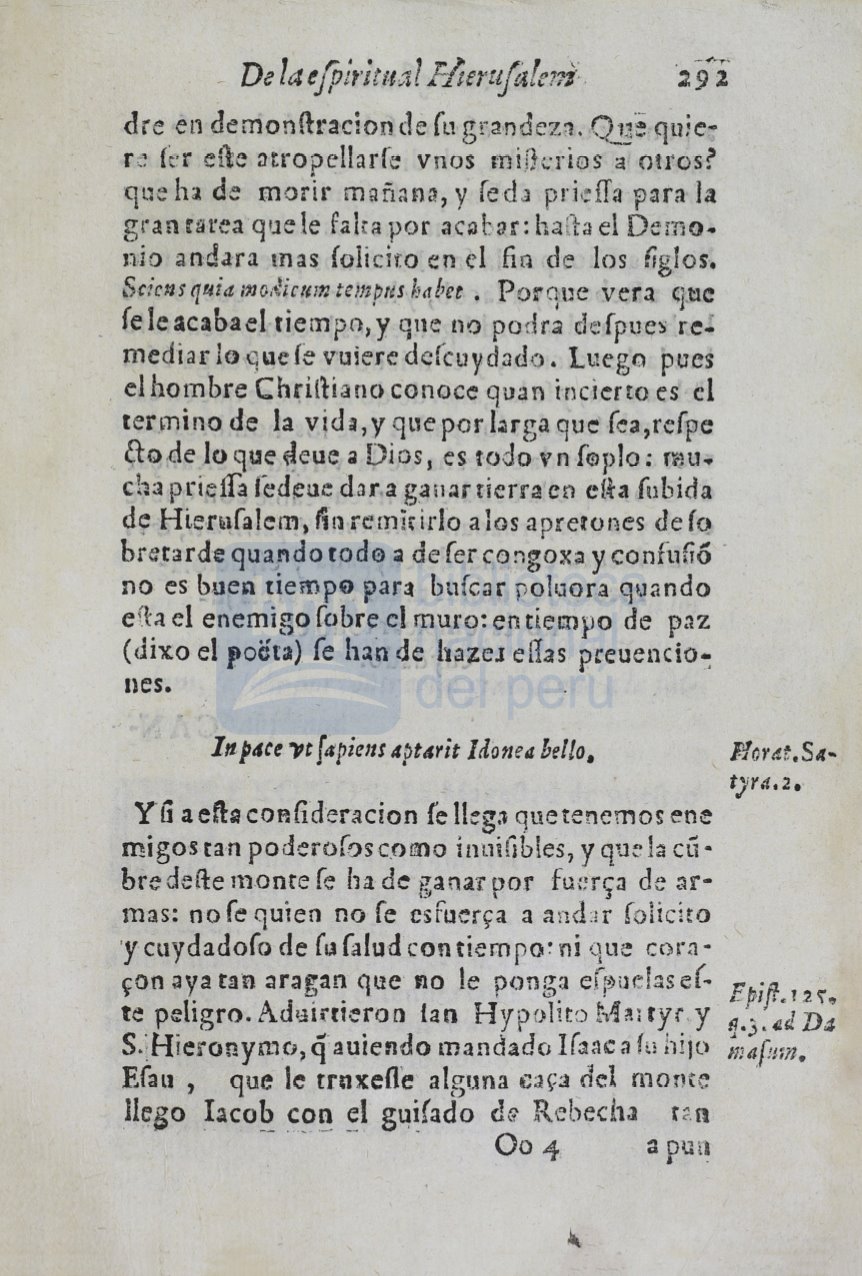 De la eſpiritual Hieruſalem 292
dre en demonſtracion de ſu grandeza. Que quie-
re ſer eſte atropellarſe vnos miſterios a otros?
que ha de morir mañana, y ſe da prieſſa para la
gran tarea que le falta por acabar: haſta el Demo-
nio andara mas ſolicito en el fin de los ſiglos.
Sciens quia modicum tempus habet . Porque vera que
ſe le acaba el tiempo, y que no podra deſpues re-
mediar lo que ſe vuiere deſcuydado. Luego pues
el hombre Chriſtiano conoce quan incierto es el
termino de la vida, y que por larga que ſea, reſpe
cto de lo que deue a Dios, es todo vn ſoplo: mu-
cha prieſſa ſe deue dar a ganar tierra en eſta ſubida
de Hieruſalem, ſin remitirlo a los apretones de ſo
bretarde quando todo a de ſer congoxa y confuſiõ
no es buen tiempo para buſcar poluora quando
eſta el enemigo ſobre el muro: en tiempo de paz
(dixo el poëta) ſe han de hazer eſſas preuencio-
nes.
In pace vt ſapiens aptarit Idonea bello.
Horat. Sa-
tyra. 2.
Y ſi a eſta conſideracion ſe llega que tenemos ene
migos tan poderoſos como inuiſibles, y que la cũ-
bre deſte monte ſe ha de ganar por fuerça de ar-
mas: no ſe quien no ſe esfuerça a andar ſolicito
y cuydadoſo de ſu ſalud con tiempo: ni que cora-
çon aya tan aragan que no le ponga eſpuelas eſ-
te peligro. Aduirtieron ſan Hypolito Martyr y
S. Hieronymo, q̃ auiendo mandado Iſaac a ſu hijo
Eſau , que le truxeſſe alguna caça del monte
llego Iacob con el guiſado de Rebecha tan
Epiſt. 125.
q. 3. ad Da
maſum.
Oo 4 a pun
del perú